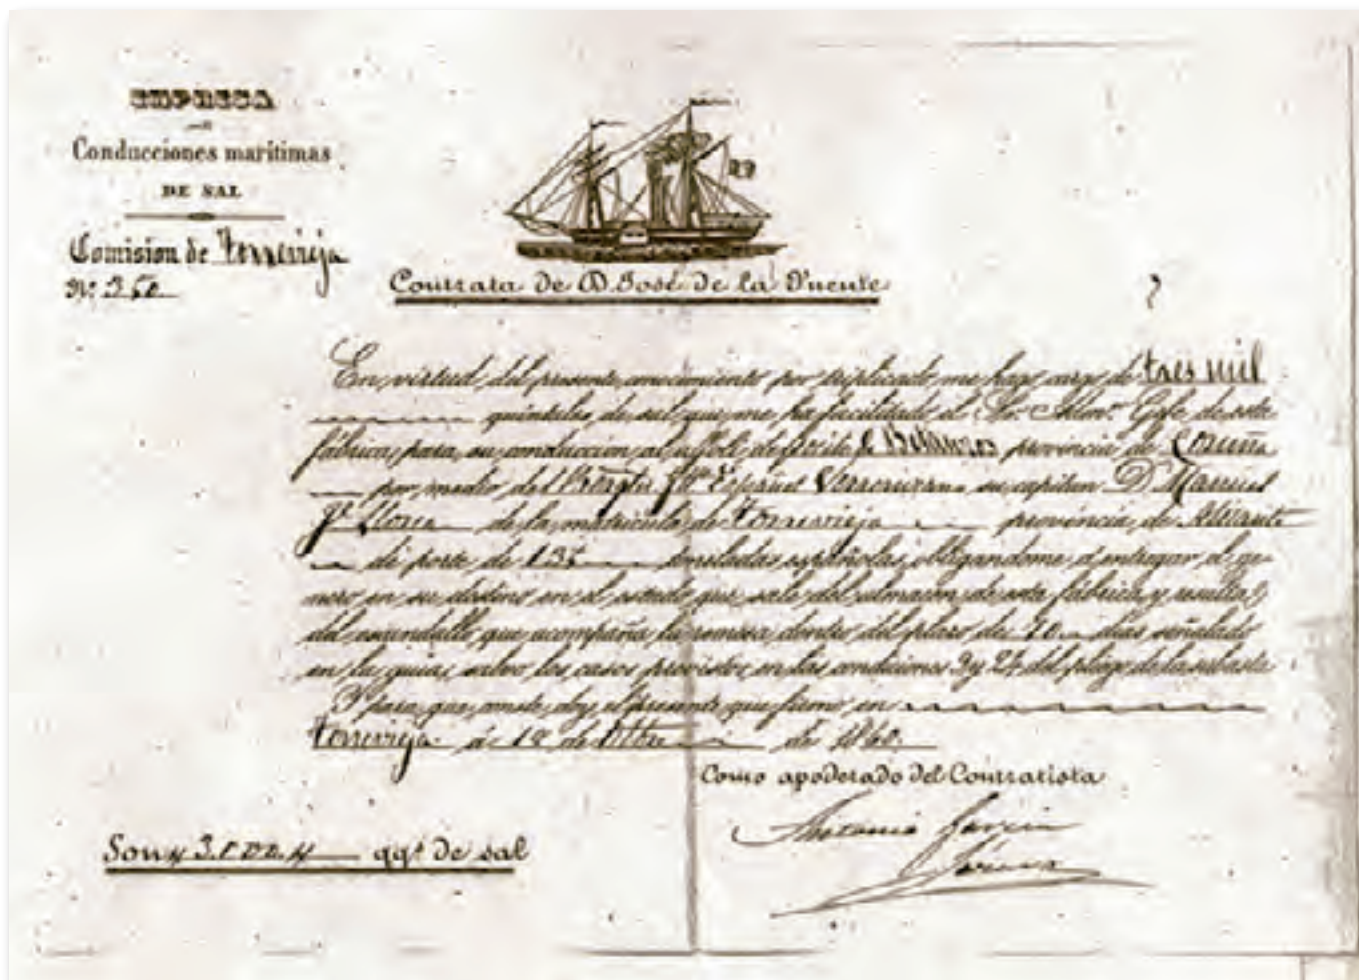 EMPRESA
DE
Conducciones marítimas
DE SAL
Comision de Torrevieja
Nº 350
Contrata de D. José de la Fuente
En virtud del presente conocimiento por triplicado me hago cargo de tres mil
quintales de sal que me ha facilitado el Sr. Admor. Gefe de esta
fábrica para su conduccion al alfolí depósito de Betanzos provincia de Coruña
por medio del Español su capitan D. Manuel
de la matricula de Torrevieja provincia de Alicante
de porte de toneladas españolas, obligandome á entregar el ge-
nero en su destino en el estado que sale del almacen de esta fábrica y resulta
del escandallo que acompaña la remesa dentro del plazo de dias señalado
en la guia, salvo los casos previstos en las condiciones 9 y 24 del pliego de la subasta
Y para que conste doy el presente que firmo en
Torrevieja á 18 de de 1860.
Como apoderado del Contratista
Antonio Garcia
Son 3.000 qqs de sal